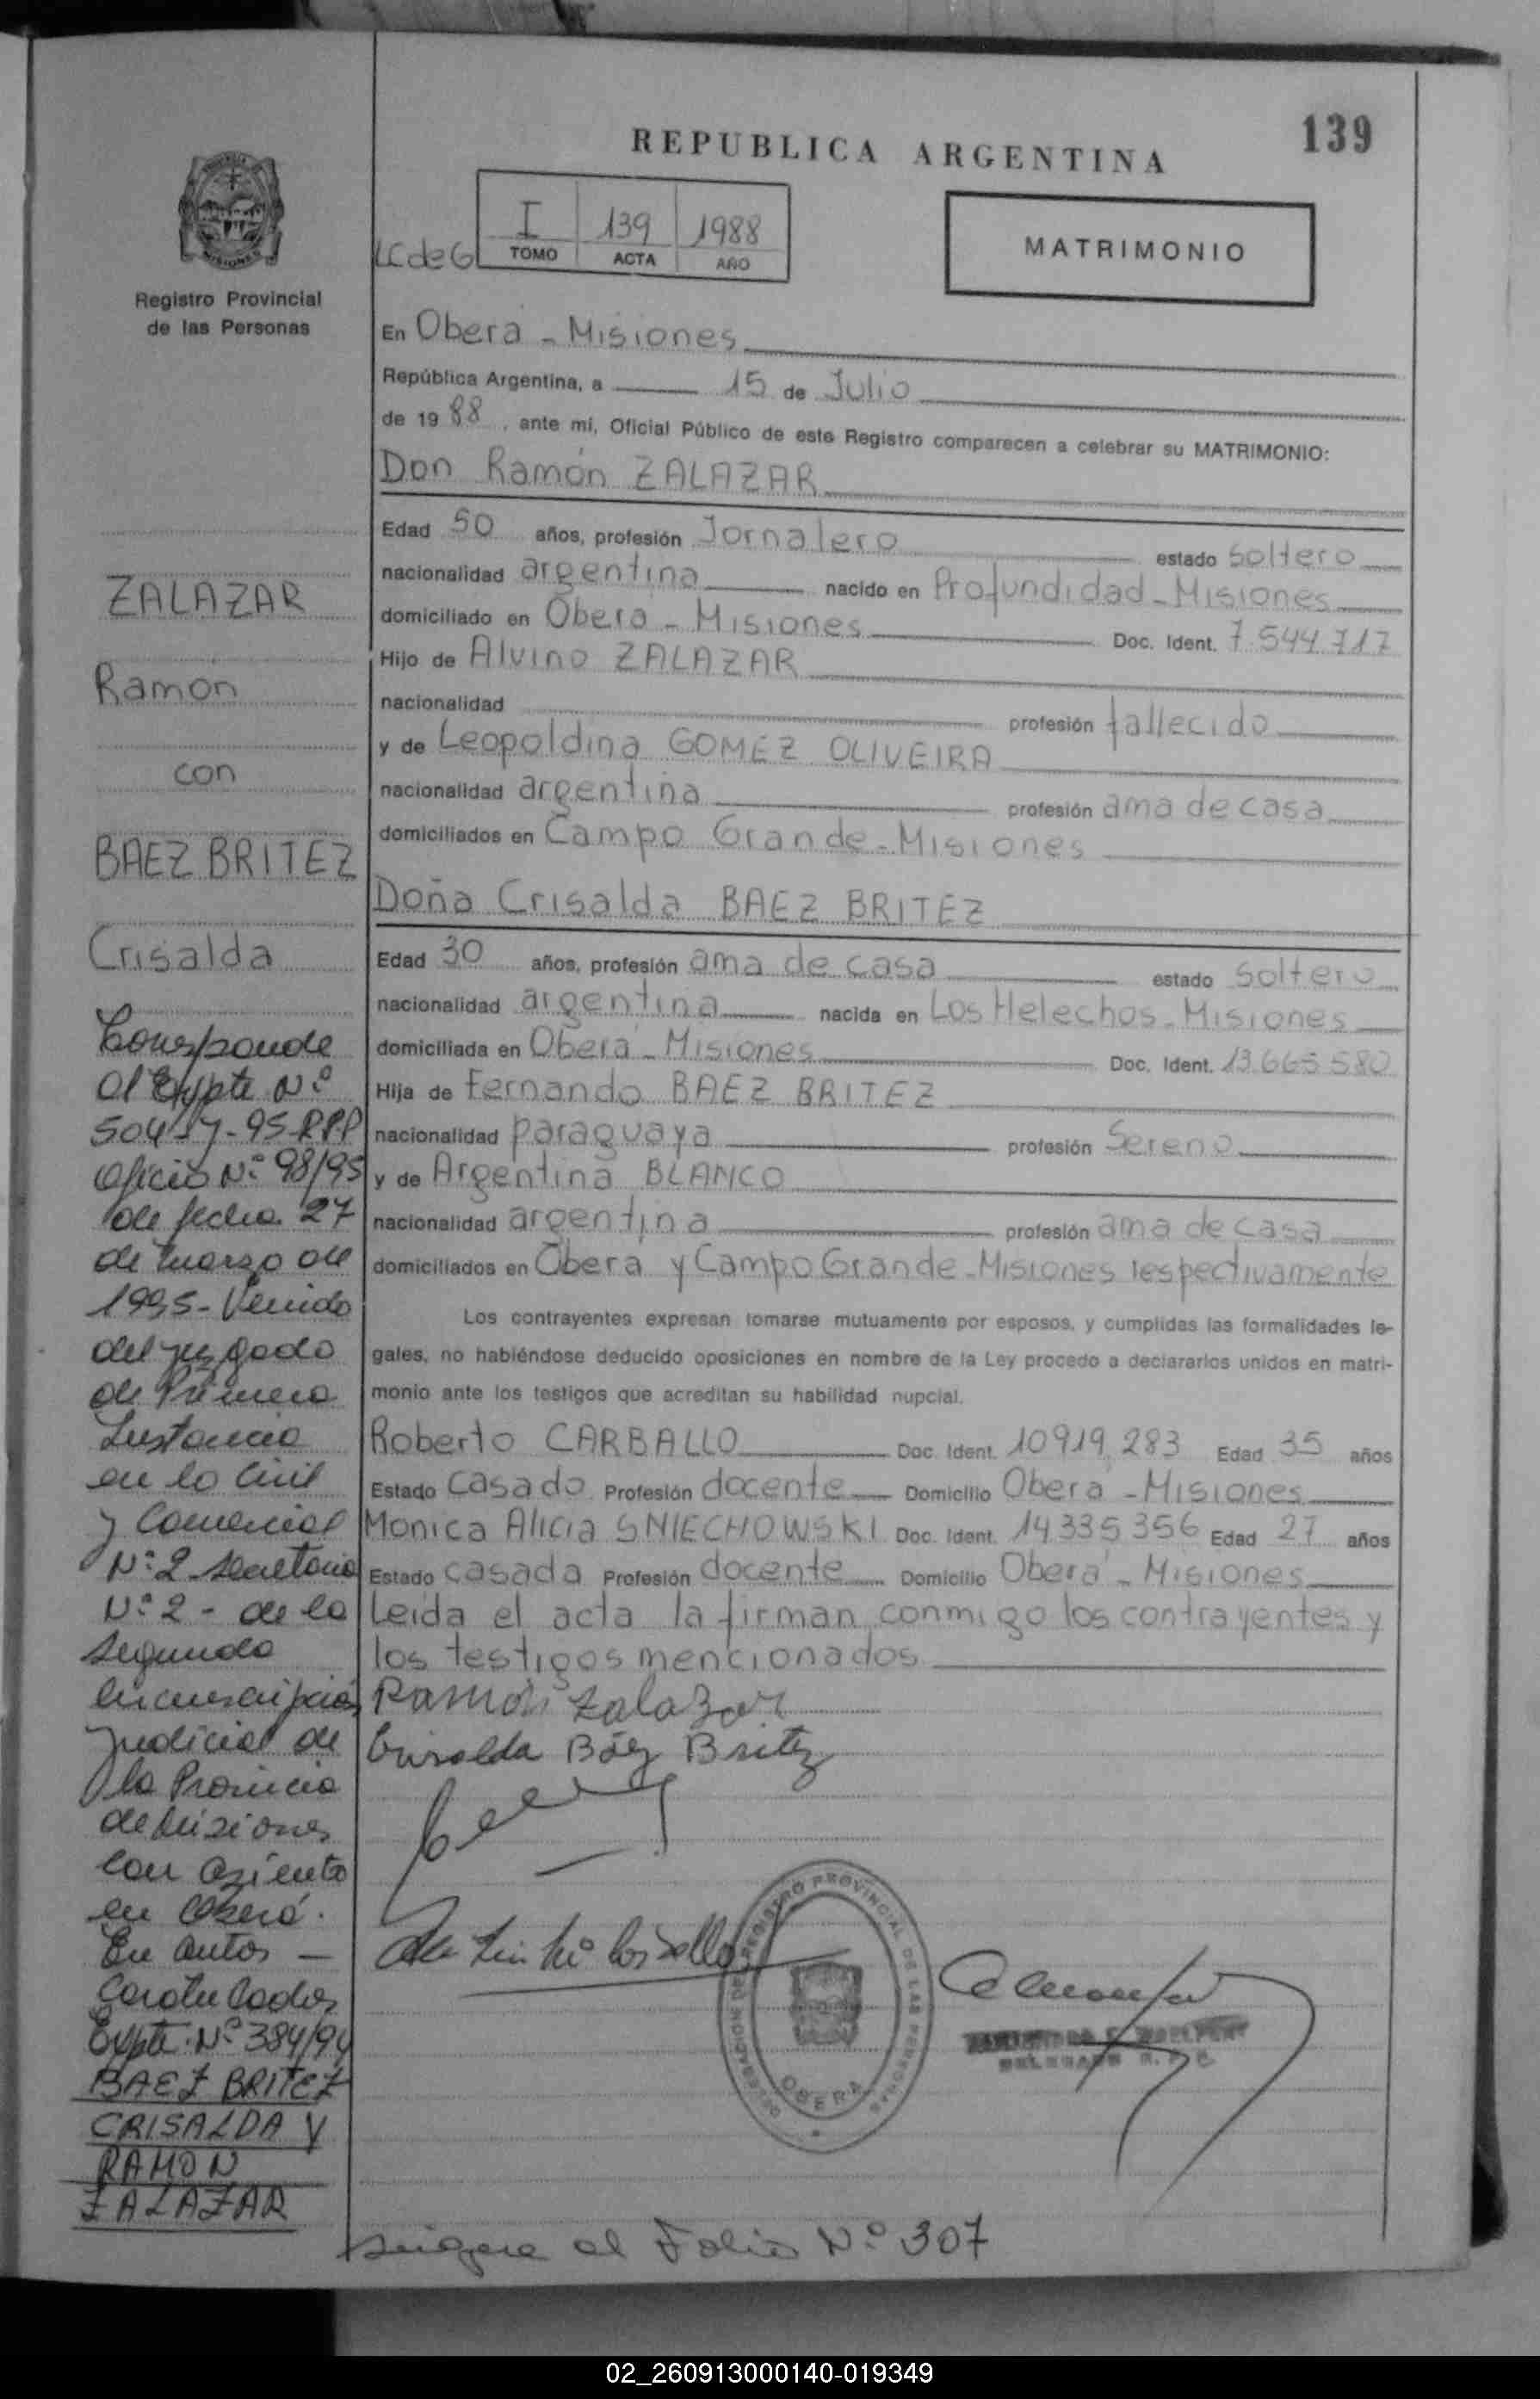 139
REPUBLICA ARGENTINA
I 139 1988
TOMO ACTA AÑO
LC de G
MATRIMONIO
Registro Provincial
de las Personas
En Oberá - Misiones
República Argentina, a 15 de Julio
de 19 88, ante mí, Oficial Público de este Registro comparecen a celebrar su MATRIMONIO:
Don Ramón ZALAZAR
Edad 50 años, profesión Jornalero estado soltero
nacionalidad argentina nacido en Profundidad - Misiones
domiciliado en Oberá - Misiones Doc. Ident. 7.544.717
Hijo de Alvino ZALAZAR
nacionalidad profesión fallecido
y de Leopoldina GOMEZ OLIVEIRA
nacionalidad argentina profesión ama de casa
domiciliados en Campo Grande - Misiones
Doña Crisalda BAEZ BRITEZ
Edad 30 años, profesión ama de casa estado soltero
nacionalidad argentina nacida en Los Helechos - Misiones
domiciliada en Oberá - Misiones Doc. Ident. 13.665.580
Hija de Fernando BAEZ BRITEZ
nacionalidad paraguaya profesión Sereno
y de Argentina BLANCO
nacionalidad argentina profesión ama de casa
domiciliados en Oberá y Campo Grande - Misiones respectivamente
Los contrayentes expresan tomarse mutuamente por esposos, y cumplidas las formalidades le-
gales, no habiéndose deducido oposiciones en nombre de la Ley procedo a declararlos unidos en matri-
monio ante los testigos que acreditan su habilidad nupcial.
Roberto CARBALLO Doc. Ident. 10919.283 Edad 35 años
Estado casado Profesión docente Domicilio Oberá - Misiones
Monica Alicia SNIECHOWSKI Doc. Ident. 14335356 Edad 27 años
Estado casada Profesión docente Domicilio Oberá - Misiones
Leida el acta la firman conmigo los contrayentes y
los testigos mencionados
Ramón Zalazar
Crisalda Báez Britez
DELEGACION DE REGISTRO PROVINCIAL DE LAS PERSONAS
OBERA
DELEGADO R.P.P.
ZALAZAR
Ramón
con
BAEZ BRITEZ
Crisalda
Corresponde
al Expte Nº
504-J-95-RPP
Oficio Nº 98/95
de fecha 27
de marzo de
1995 - Venido
del juzgado
de Primera
Instancia
en lo Civil
y Comercial
Nº 2 secretaria
Nº 2 - de la
segunda
circunscripción
judicial de
la Provincia
de Misiones
con asiento
en Oberá.
En autos -
Caratulados
Expte. Nº 384/94
BAEZ BRITEZ
CRISALDA Y
RAMON
ZALAZAR
Sigue al Folio Nº 307
02_260913000140-019349